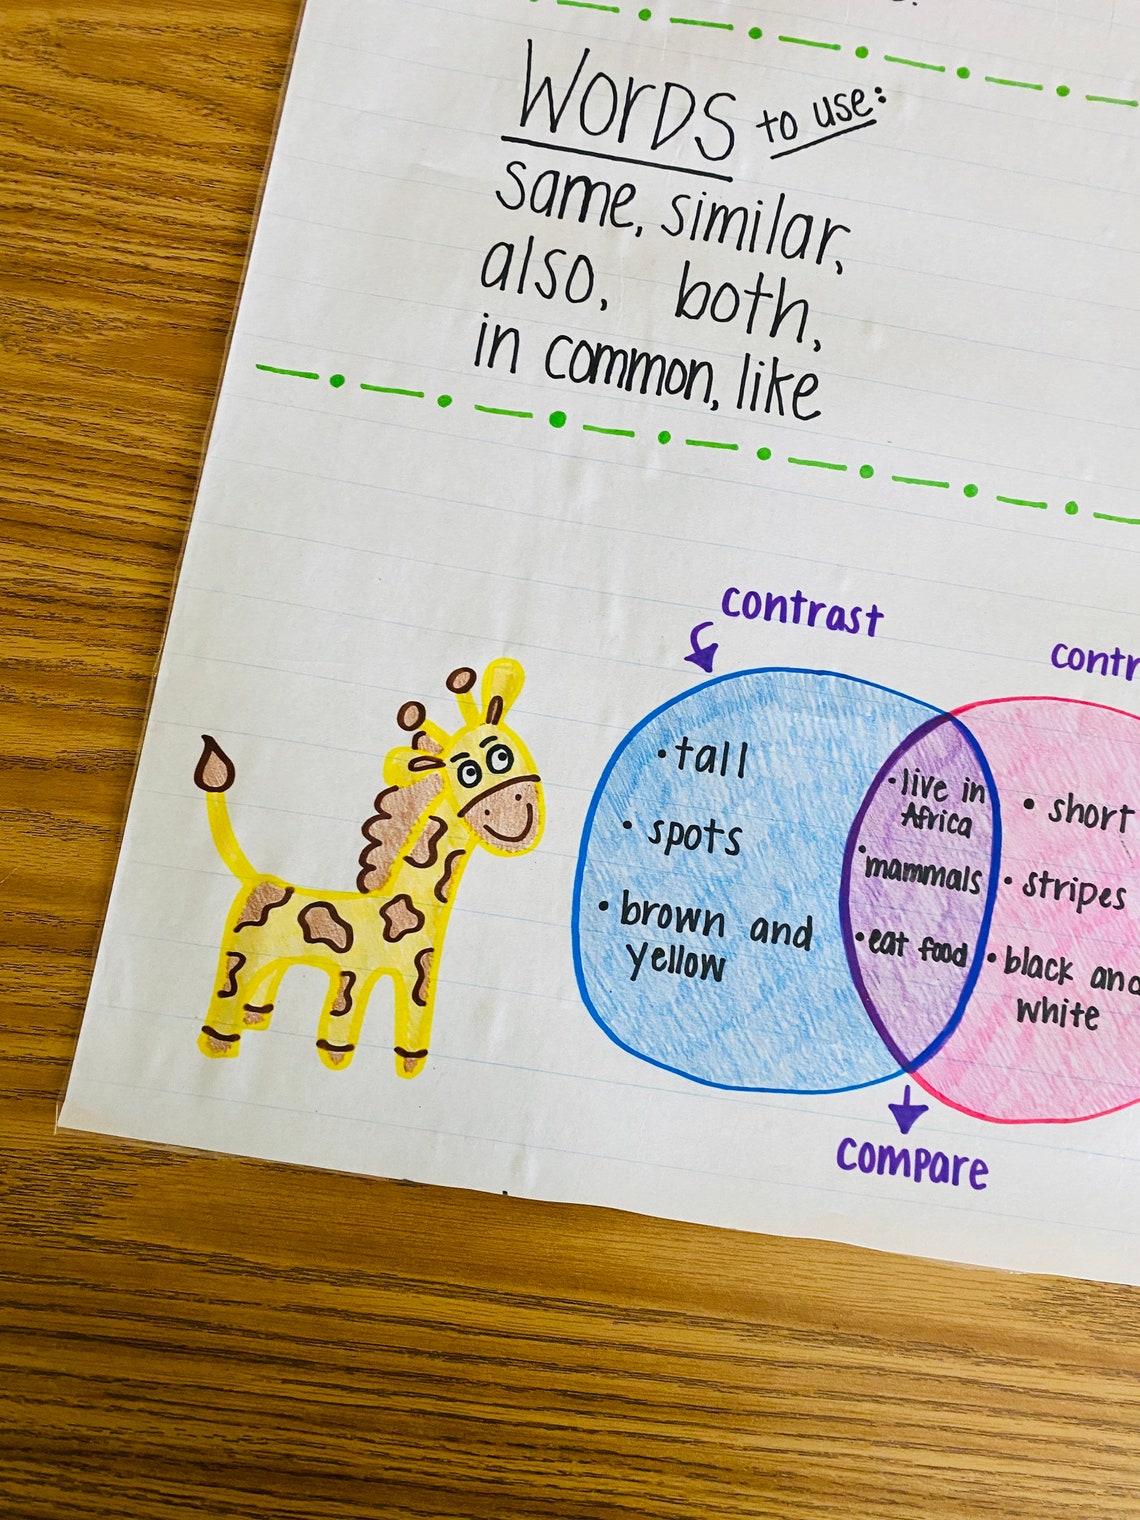 WORDS to use:
same, similar,
also, both,
in common, like
contrast
contr
• tall
• spots
• brown and
yellow
• live in
Africa
• mammals
• eat food
• short
• stripes
• black and
white
compare